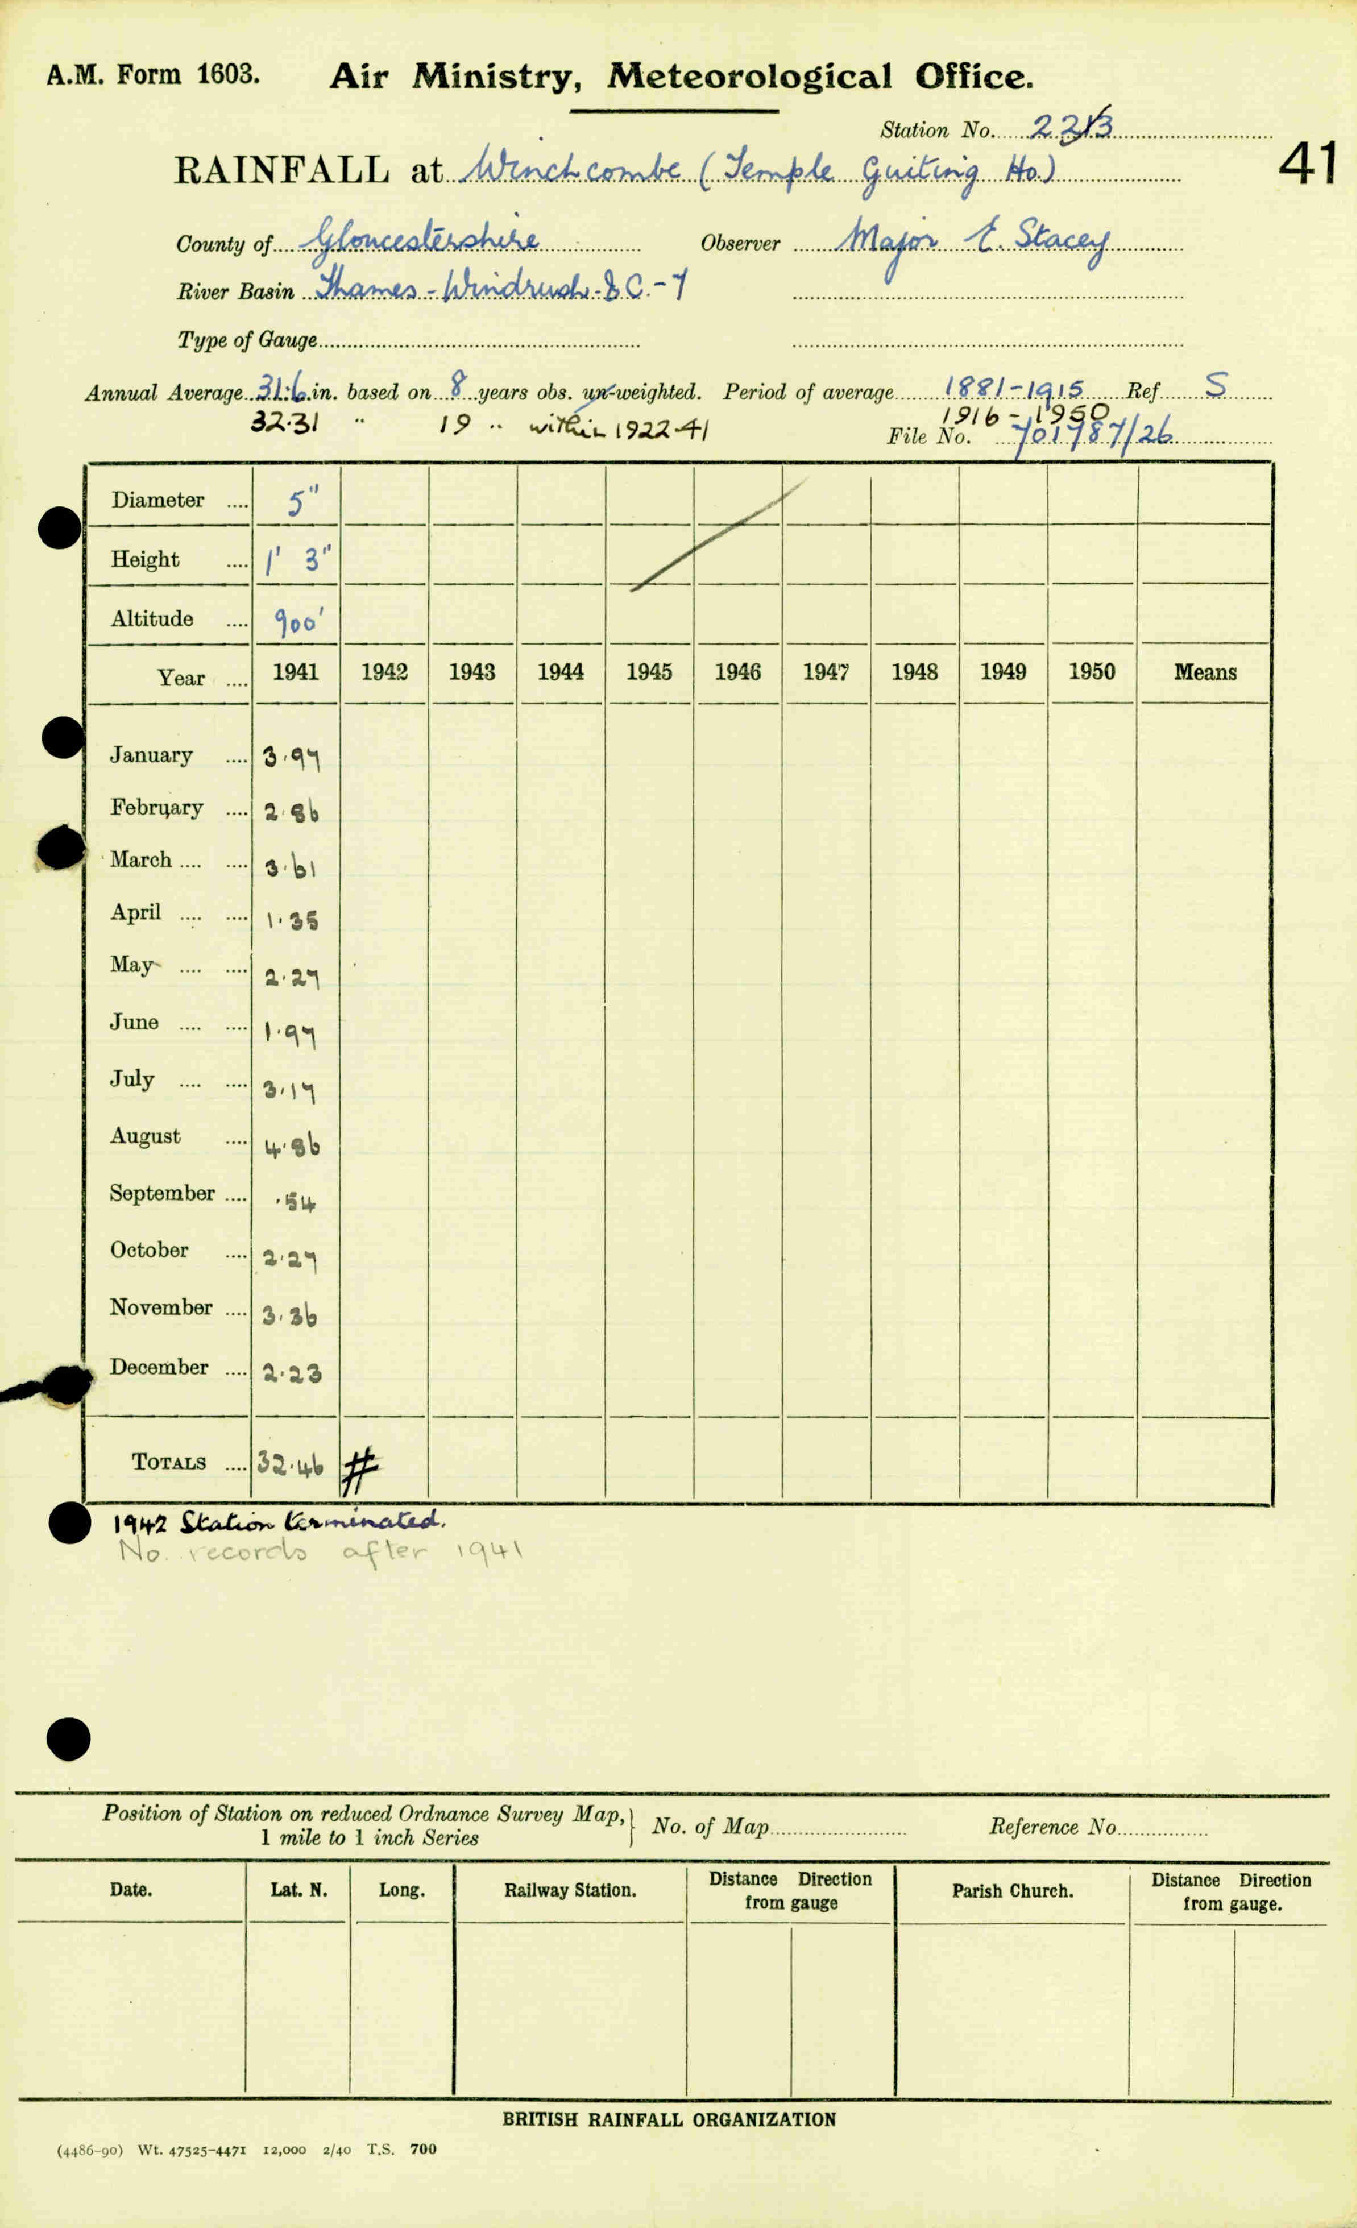 A.M. Form 1603. Air Ministry, Meteorological Office.
Station No.
41
RAINFALL at Winchcombe (Temple Guiting Ho.)
County of Gloucestershire Observer Major E. Stacey
River Basin Thames - Windrush - & C. - 7
Type of Gauge
Annual Average 31.6 in. based on 8 years obs. un-weighted. Period of average 1881-1915 Ref S
32.31 " 19 " within 1922-41 1916-1950
File No. 701787/26
Diameter .... 5"
Height .... 1' 3"
Altitude .... 900'
Year .... 1941 1942 1943 1944 1945 1946 1947 1948 1949 1950 Means
January .... 3.97
February .... 2.86
March .... .... 3.61
April .... .... 1.35
May .... .... 2.27
June .... .... 1.97
July .... .... 3.17
August .... 4.86
September .... .54
October .... 2.27
November .... 3.36
December .... 2.23
TOTALS .... 32.46 #
1942 Station terminated.
No records after 1941
Position of Station on reduced Ordnance Survey Map, 1 mile to 1 inch Series } No. of Map Reference No.
Date. Lat. N. Long. Railway Station. Distance Direction from gauge Parish Church. Distance Direction from gauge.
BRITISH RAINFALL ORGANIZATION
(4486-90) Wt. 47525-4471 12,000 2/40 T.S. 700